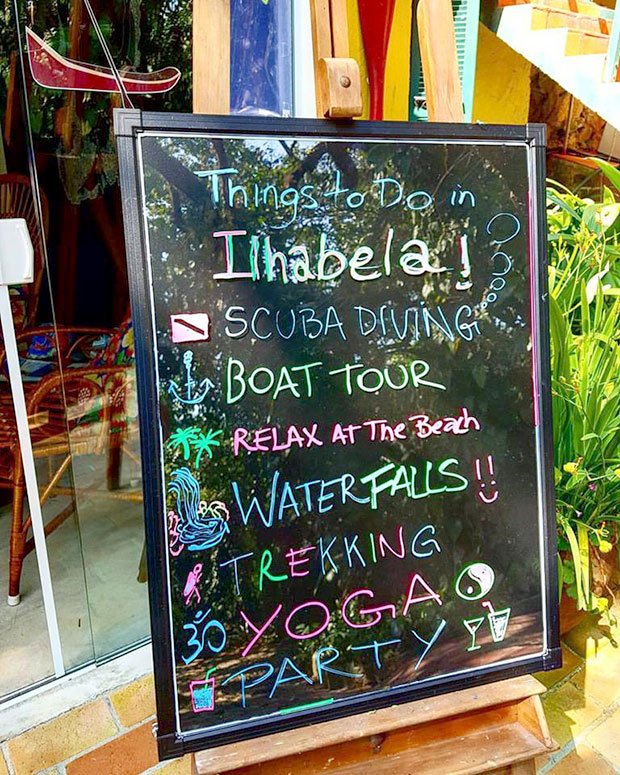 Things to Do in
Ilhabela!
SCUBA DIVING
BOAT TOUR
RELAX AT The Beach
WATERFALLS!!
TREKKING
ॐ YOGA
PARTY